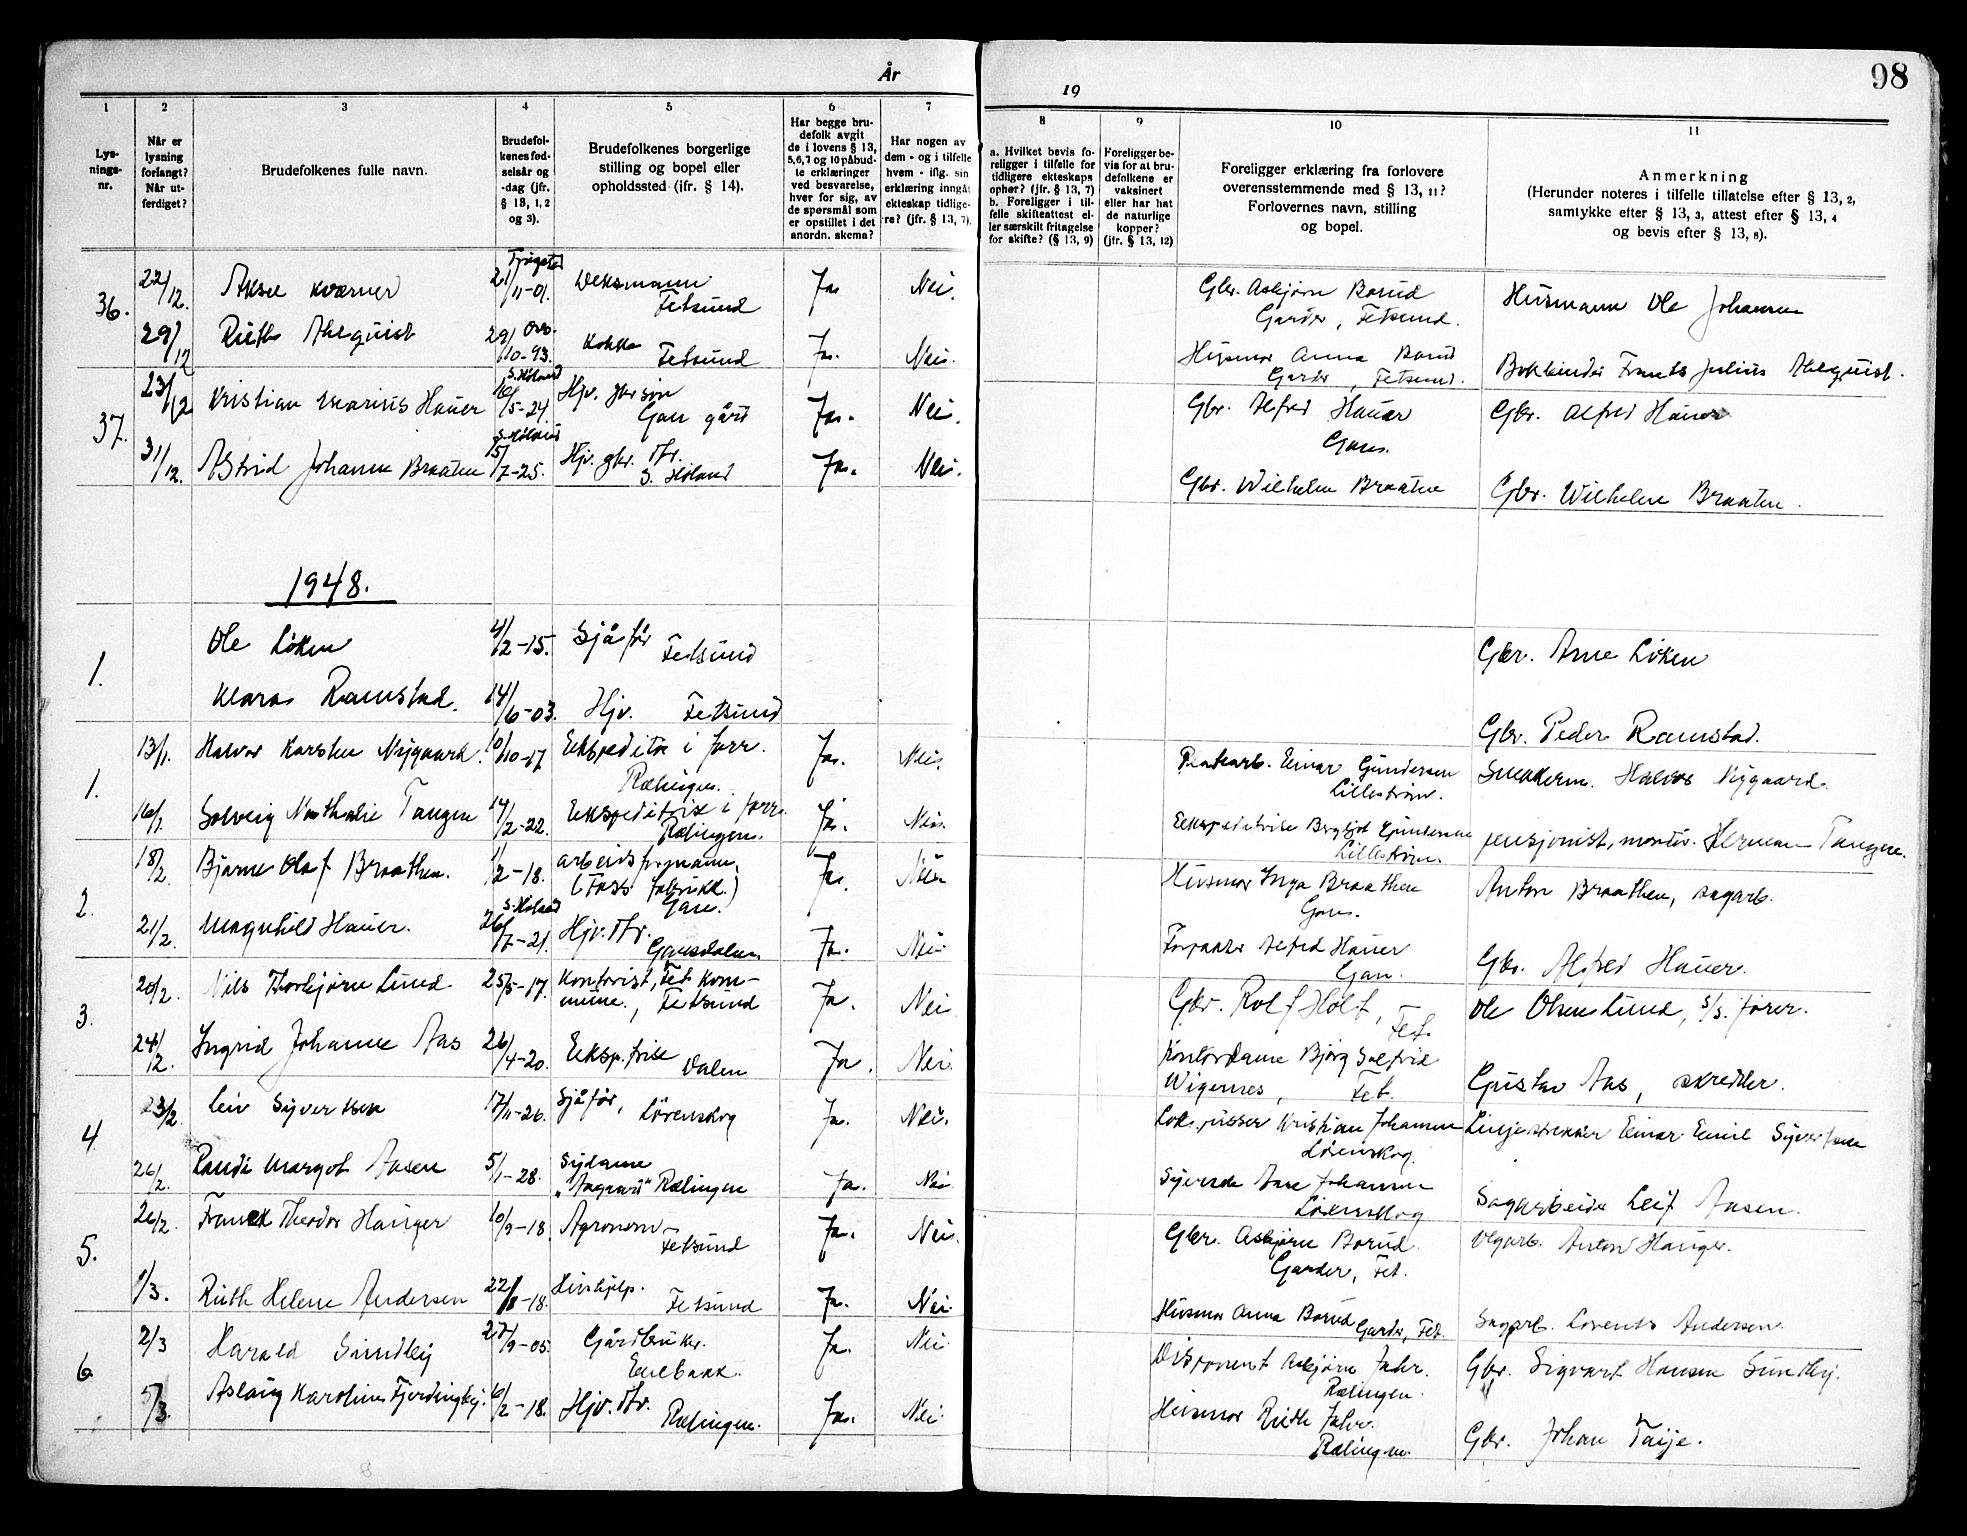 År
19
98
1
2
3
4
5
6
7
8
9
10
11
Lys-
nings-
nr.
Når er
lysning
forlangt?
Når ut-
ferdiget?
Brudefolkenes fulle navn.
Brudefol-
kenes fød-
selsår og
-dag (jfr.
§ 13, 1, 2
og 3).
Brudefolkenes borgerlige
stilling og bopel eller
opholdssted (jfr. § 14).
Har begge bru-
defolk avgit
de i lovens § 13,
5,6,7 og 10 påbud-
te erklæringer
ved besvarelse,
hver for sig, av
de spørsmål som
er opstillet i det
anordn. skema?
Har nogen av
dem - og i tilfelle
hvem - iflg. sin
erklæring inngått
ekteskap tidlige-
re? (jfr. § 13, 7).
a. Hvilket bevis fo-
religger i tilfelle for
tidligere ekteskaps
ophør? (jfr. § 13, 7)
b. Foreligger i til-
felle skifteattest el-
ler særskilt fritagelse
for skifte? (§ 13, 9)
Foreligger be-
vis for at bru-
defolkene er
vaksinert
eller har hat
de naturlige
kopper?
(jfr. § 13, 12)
Foreligger erklæring fra forlovere
overensstemmende med § 13, 11?
Forlovernes navn, stilling
og bopel.
Anmerkning
(Herunder noteres i tilfelle tillatelse efter § 13, 2,
samtykke efter § 13, 3, attest efter § 13, 4
og bevis efter § 13, 8).
36. 22/12. Aksel Kværner 21/11-01. Fetsund Ja Nei. Gbr. Asbjørn Borud Husmann Ole Johansen
Garder, Fetsund.
29/12 Ruth Ahlquist 29/10-93. Kokke Fetsund Ja. Nei. Husmor Anna Borud Bokbinder Frants Julius Ahlquist.
Garder, Fetsund.
37. 23/12 Kristian Marius Hauer S. Høland 16/5-24 Hjv. gbr. søn Ja. Nei. Gbr. Alfred Hauer Gbr. Alfred Hauer
Gan gård Gan.
31/12. Astrid Johanne Braaten S. Høland 15/7-25. Hjv. gbr. dtr. Ja. Nei. Gbr. Wilhelm Braaten Gbr. Wilhelm Braaten.
S. Høland
1948.
1. Ole Løken 4/2-15. Sjåfør Fetsund Gbr. Arne Løken
Klara Ramstad. 14/6-03. Hjv. Fetsund Gbr. Peder Ramstad.
1. 13/1. Halvor Karsten Nygaard. 10/10-17 Ekspeditør i forr. Ja. Nei. Einar Gundersen Snekkerm. Halvor Nygaard.
Rælingen. Lillestrøm.
16/1. Solveig Nathalie Tangen 14/2-22. Ekspeditrise i forr. Ja. Nei. Ekspeditrise Bergljot Gundersen pensjonist, montør. Herman Tangen.
Rælingen. Lillestrøm.
2. 18/2. Bjarne Olaf Braathen. 1/2-18. arbeidsformann, Ja. Nei Husmor Inga Braathen Anton Braathen, sagarb.
(Foss fabrikk.) Gan. Gan.
21/2. Magnhild Hauer. S. Høland 26/7-21. Hjv. dtr. Ja. Nei. Forpakter Alfred Hauer Gbr. Alfred Hauer.
Gansdalen Gan.
3. 20/2. Nils Thorbjørn Lund 25/5-17. Kontorist, Fet kom- Ja. Nei Gbr. Rolf Holt, Fet. Ole Olsen Lund, s/s. fører.
mune., Fetsund
24/2. Ingrid Johanne Aas 26/4-20. Eksp.trise Dalen Ja. Nei. Kontordame Bjørg Solfrid Gustav Aas, skredder.
Wigernes, Fet.
4. 23/2. Leiv Syversen 17/11-26. Sjåfør, Lørenskog Ja. Nei. Lok.pusser Kristian Johansen Linjestrekker Einar Emil Syversen
Lørenskog.
26/2. Randi Margot Aasen 5/1-28. Sydame Ja. Nei Syerske Aase Johansen Sagarbeider Leif Aasen.
Rælingen Lørenskog
5. 26/2. Franck Theodor Hauger 10/9-18. Agronom Ja. Nei. Gbr. Asbjørn Borud. Vegarb. Anton Hauger.
Fetsund Garder, Fet.
1/3. Ruth Helene Andersen 22/8-18. Hushjelp. Fetsund Ja. Nei. Husmor Anna Borud Garder, Fet. Sagarb. Lorents Andersen.
6. 2/3 Harald Sundby 27/9-05. Gårdbruker. Ja. Nei Disponent Asbjørn Jahr. Gbr. Sigvart Hansen Sundby.
Enebakk. Rælingen.
5/3. Aslaug Karoline Fjerdingby. 6/2-18. Hjv. dtr. Rælingen. Ja. Nei Husmor Ruth Jahr. Gbr. Johan Taije.
Rælingen.